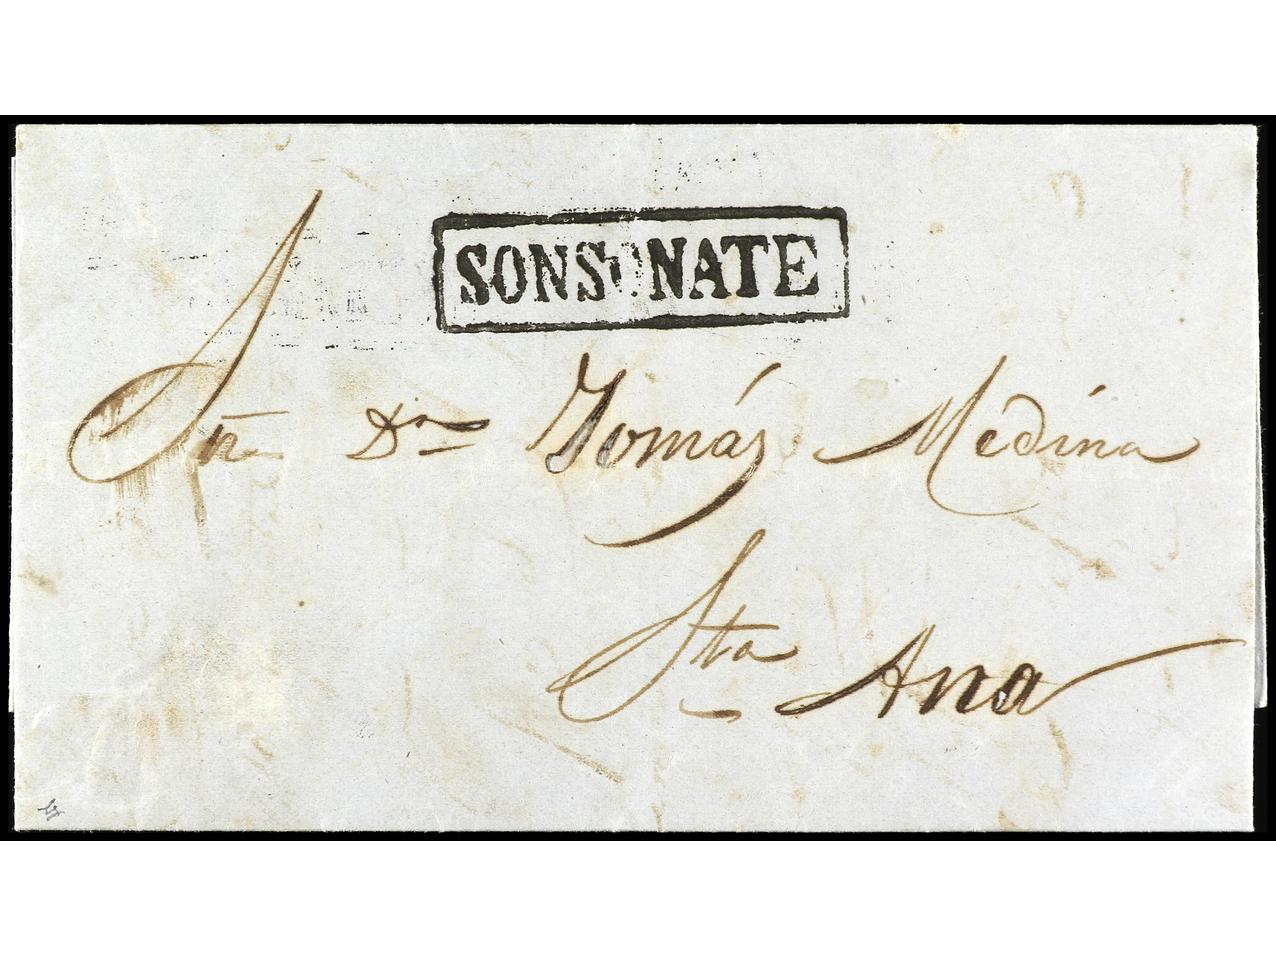 SONSONATE
Sn Dn Tomás Medina
Sta Ana